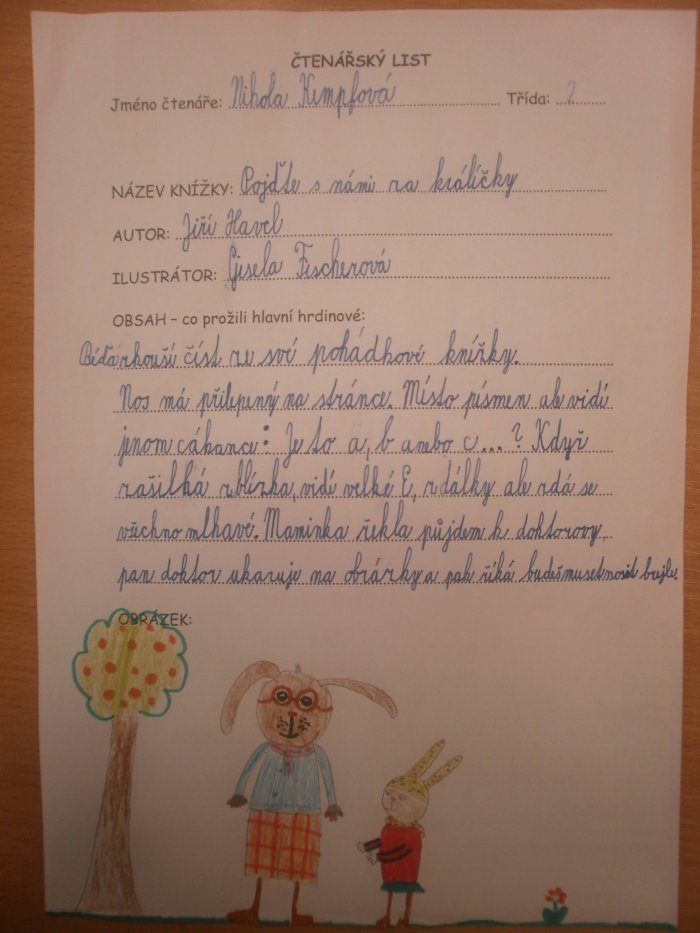 ČTENÁŘSKÝ LIST
Jméno čtenáře: Nikola Kempfová Třída: 2
NÁZEV KNÍŽKY: Pojďte s námi za králíčky
AUTOR: Jiří Havel
ILUSTRÁTOR: Gisela Fischerová
OBSAH – co prožili hlavní hrdinové:
Béďa zkouší číst ze své pohádkové knížky.
Nos má přilepený na stránce. Místo písmen ale vidí
jenom cákance: Je to a, b anebo c...? Když
zašilká zblízka, vidí velké E, z dálky ale zdá se
všechno mlhavé. Maminka řekla půjdem k doktorovy,
pan doktor ukazuje na obrázky a pak říká budeš muset nosit brejle.
OBRÁZEK: